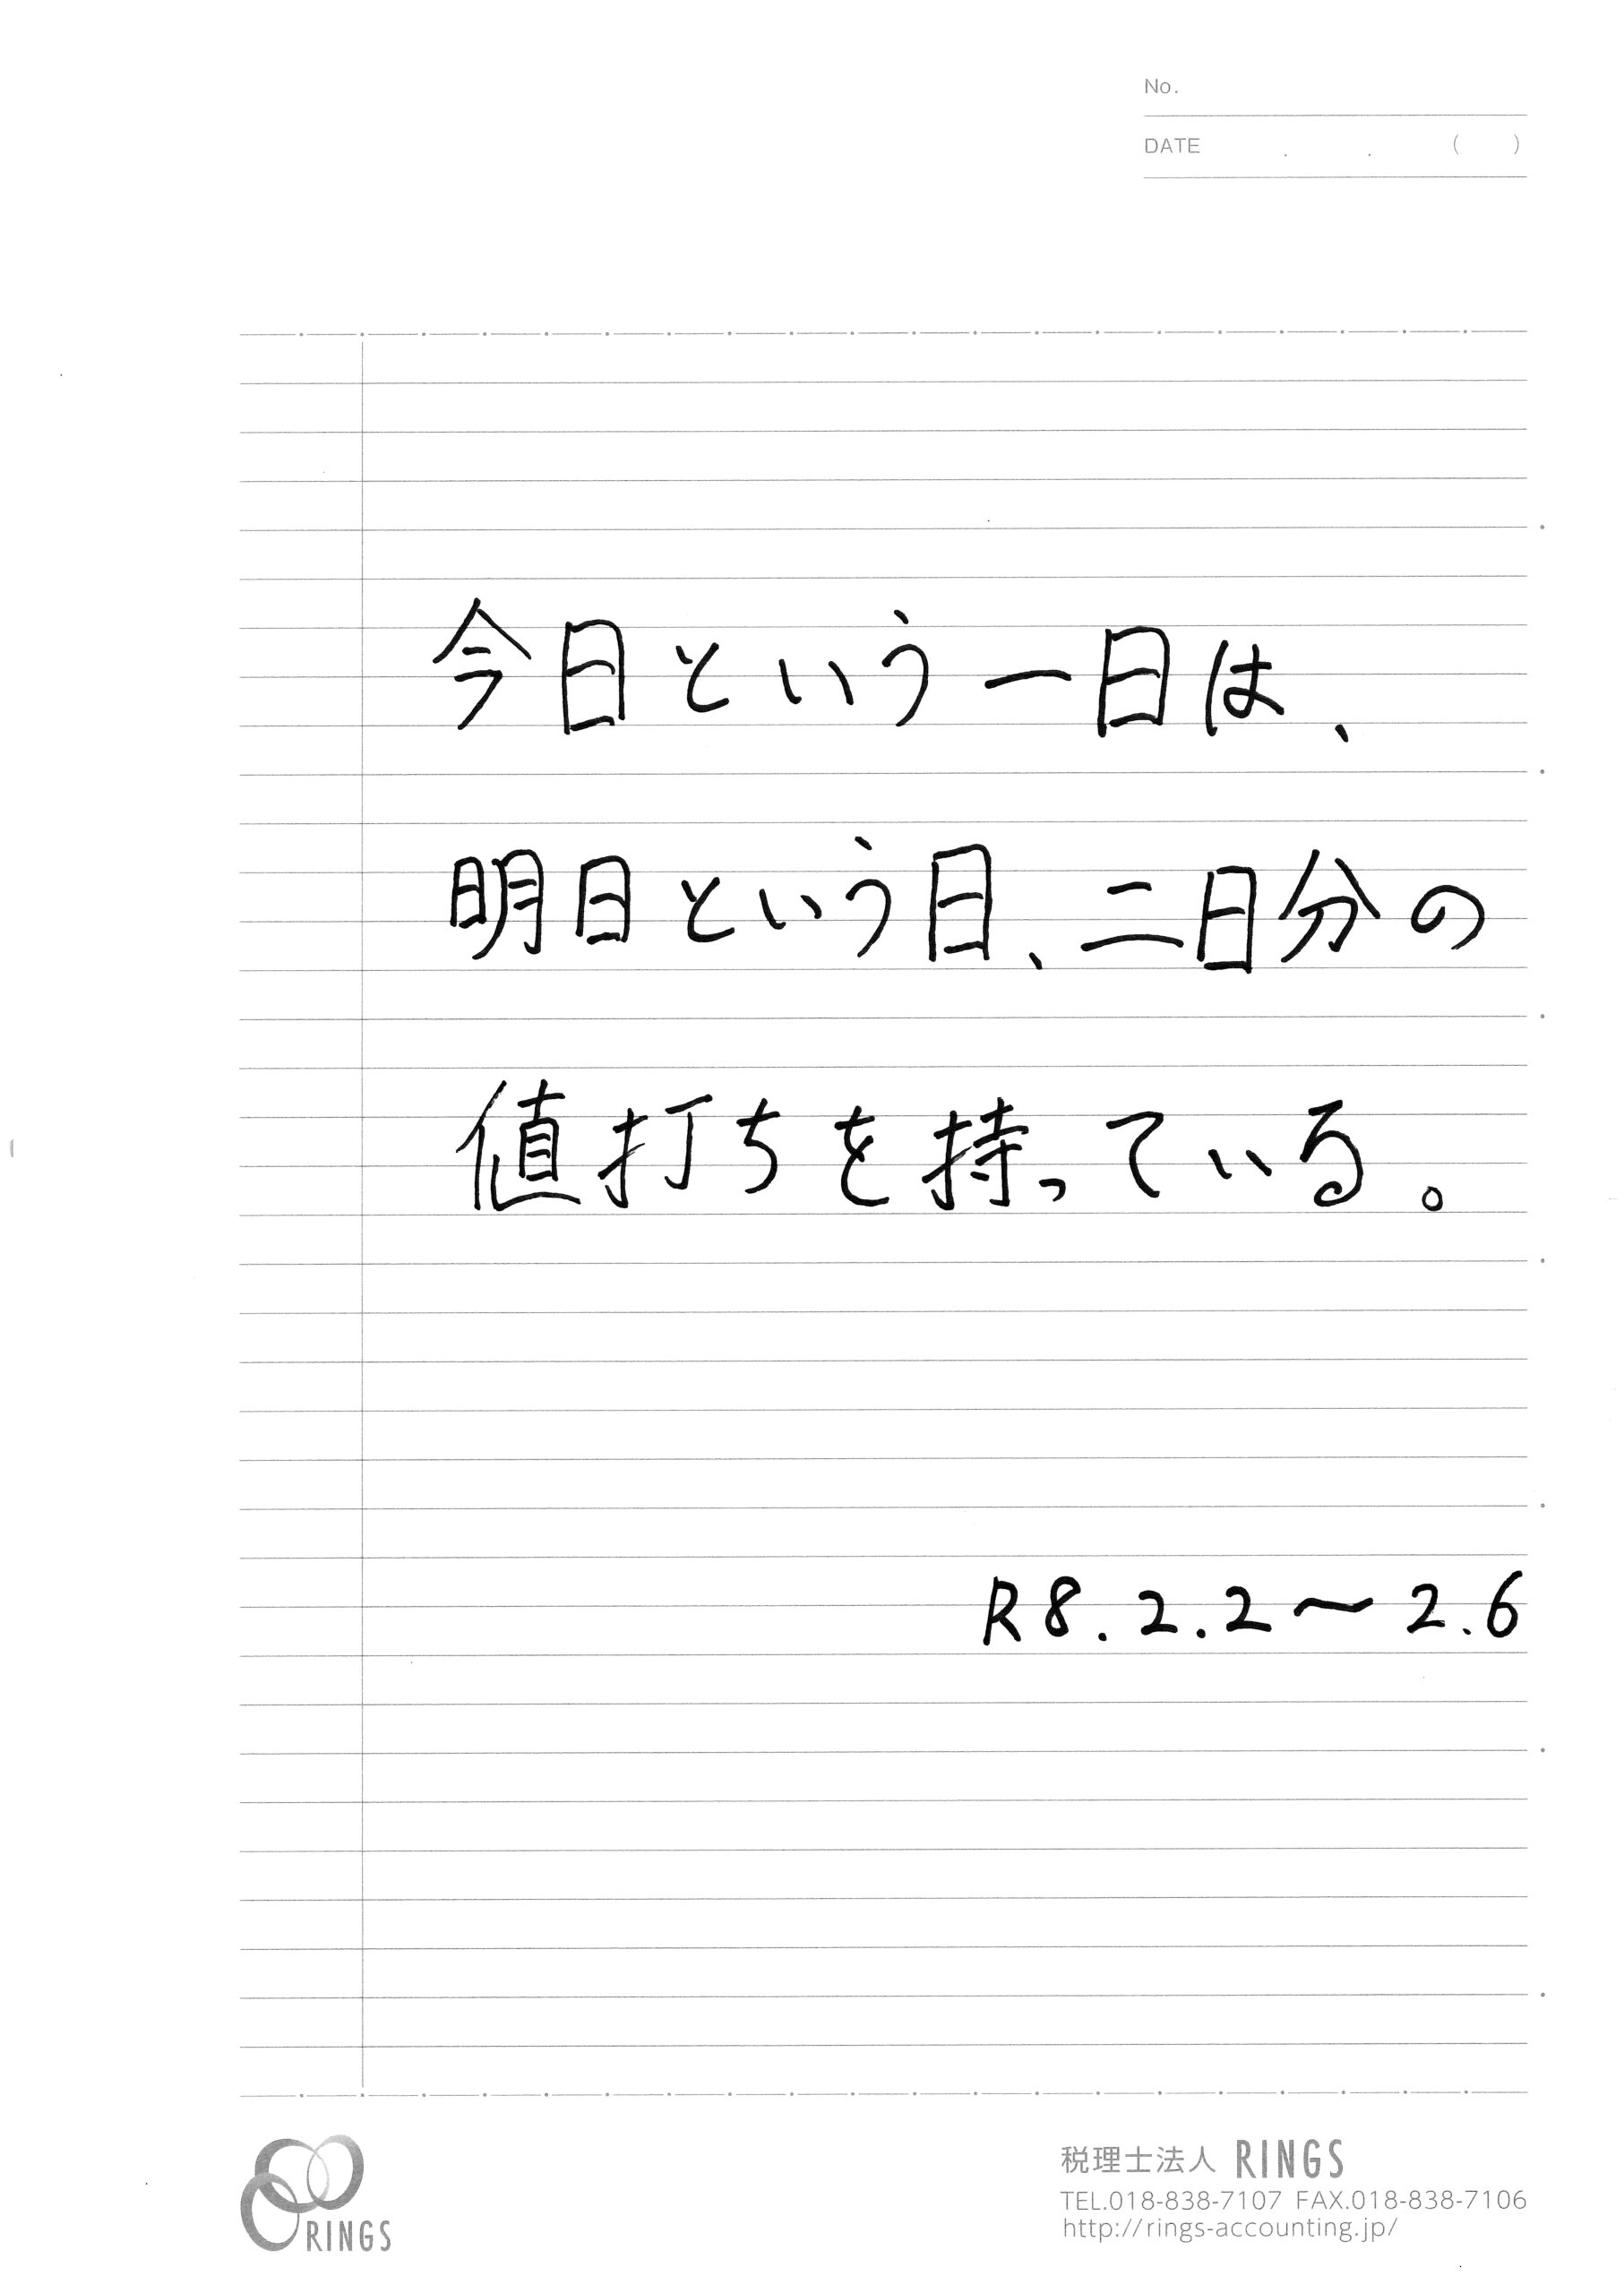 No.
DATE . . ( )
今日という一日は、
明日という日、二日分の
値打ちを持っている。
R8.2.2〜2.6
RINGS
税理士法人 RINGS
TEL.018-838-7107 FAX.018-838-7106
http://rings-accounting.jp/